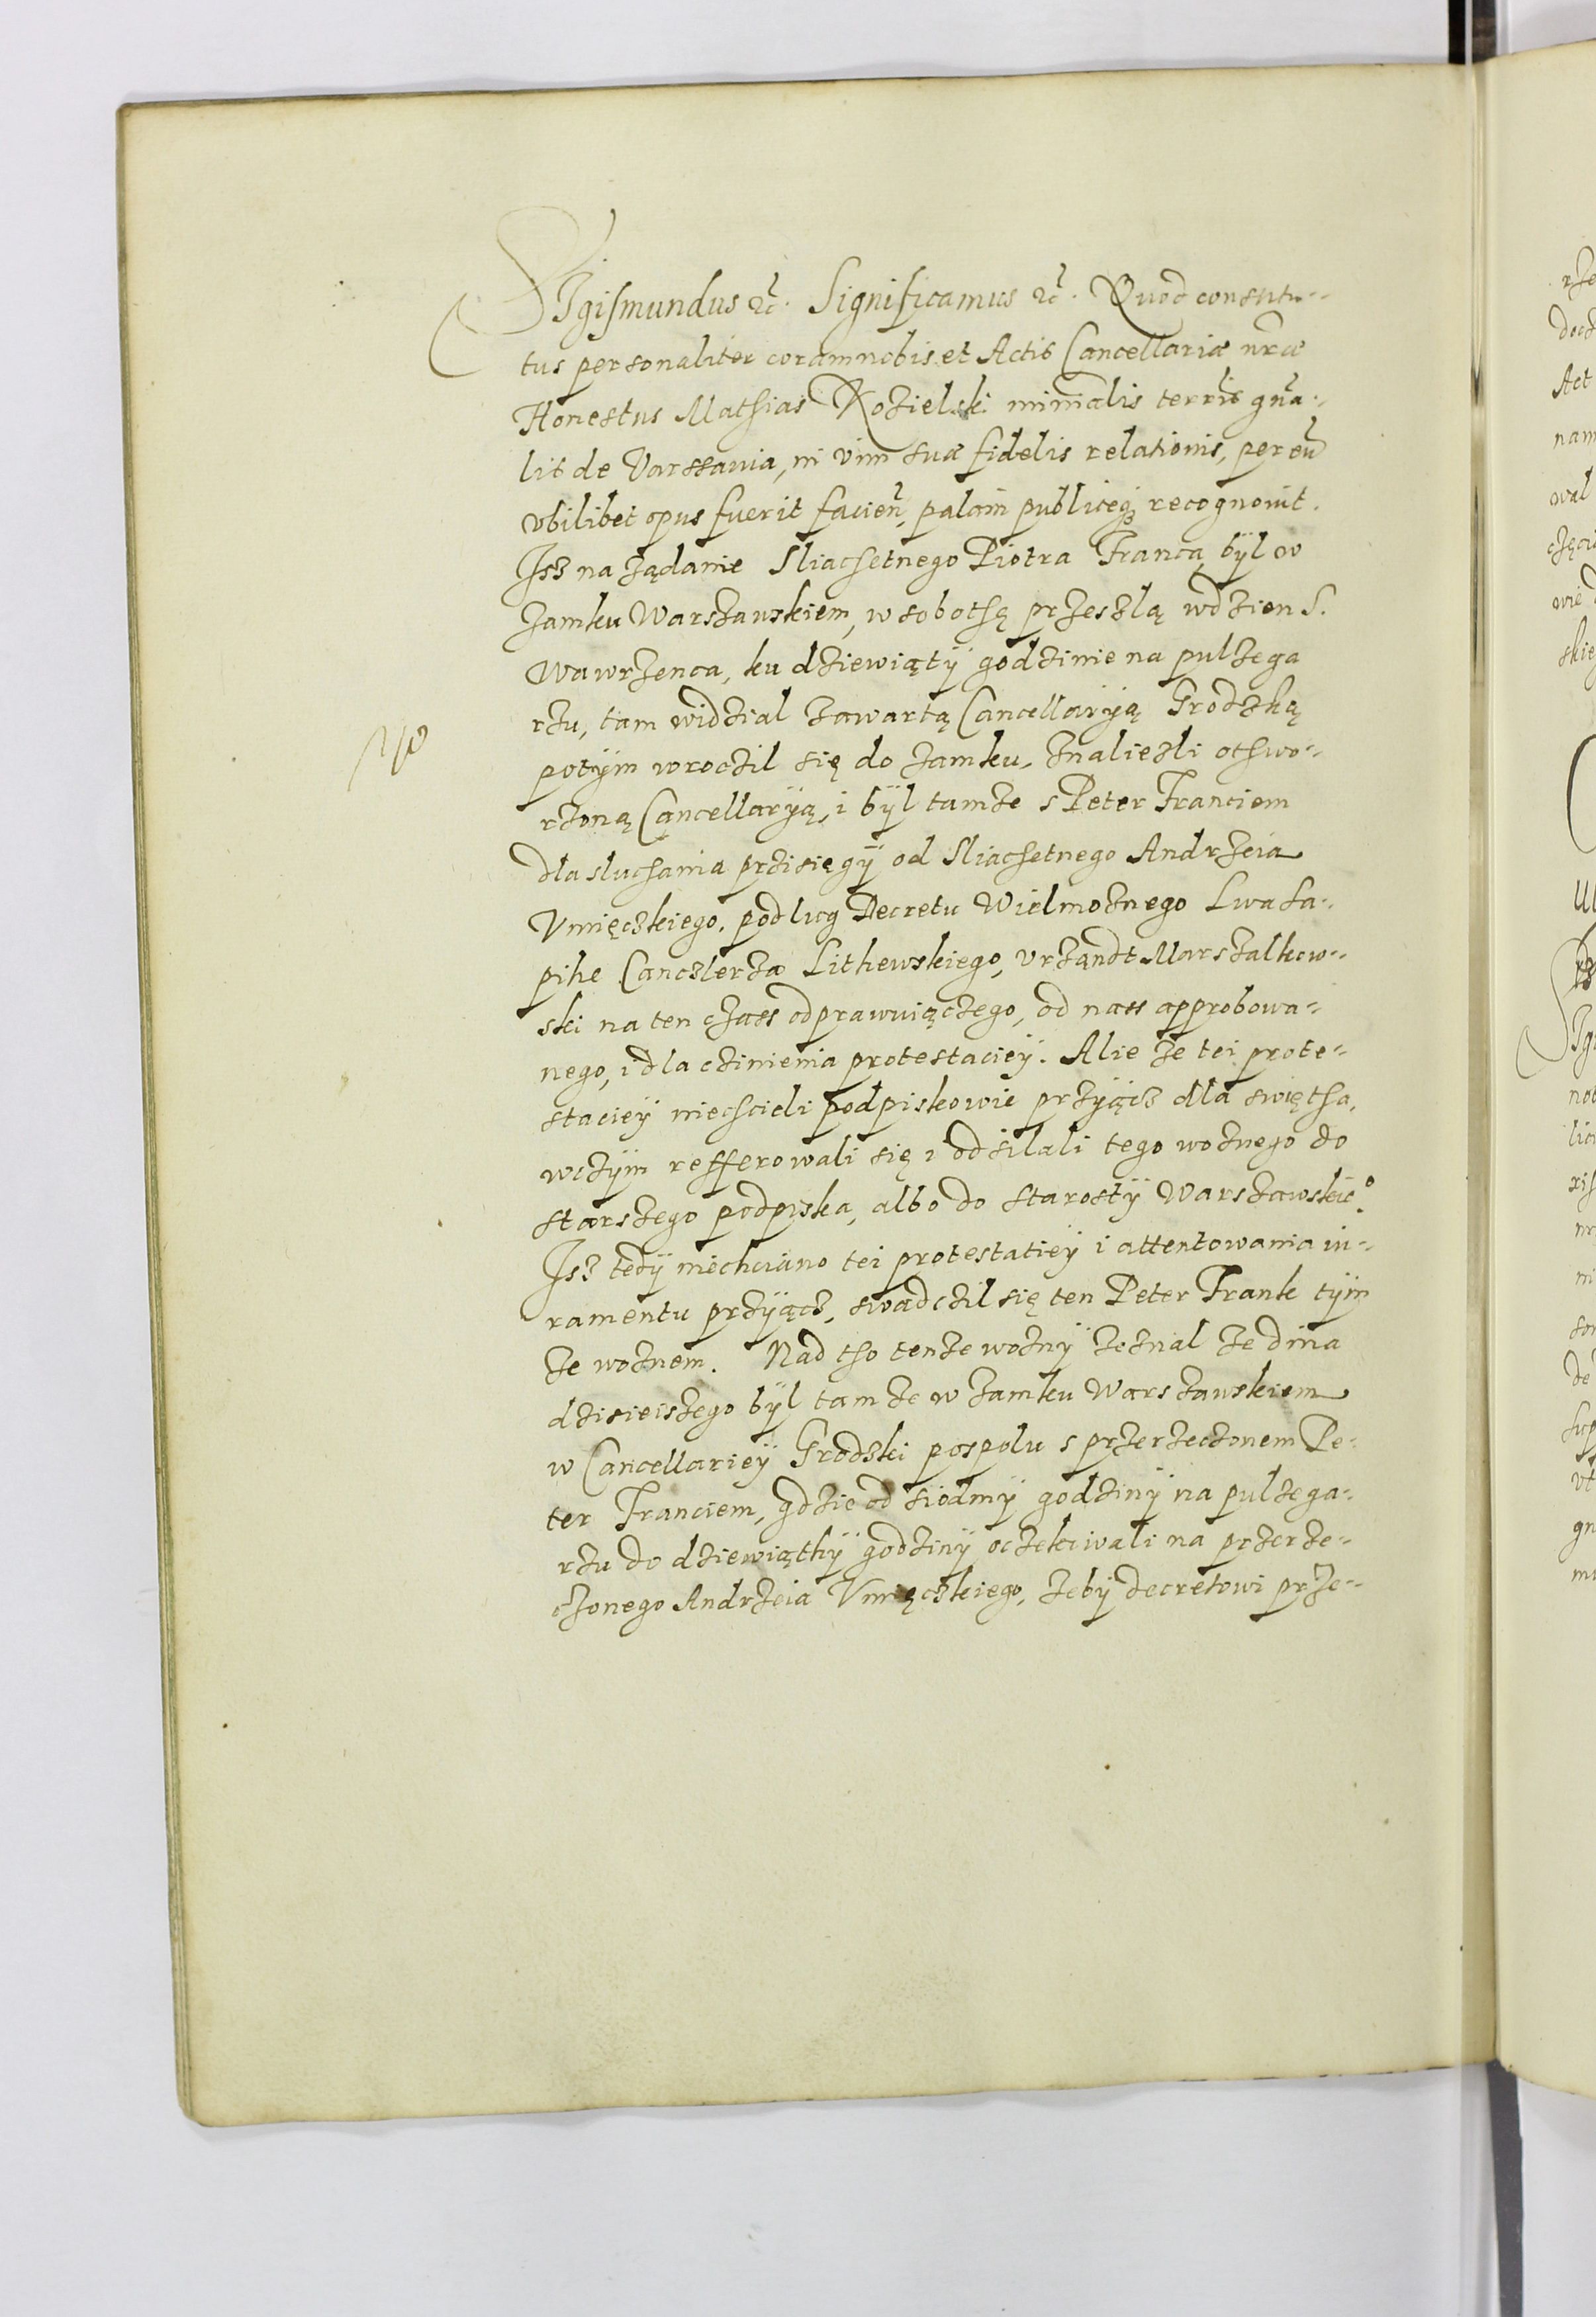 Sigismundus etc. Significamus etc. Quod constitu-
tus personaliter coram nobis et Actis Cancellariæ nr̃æ
Honestus Mathias Kozielski minr̃alis terrr̃is gñra-
lis de Varssauia, in vim suæ fidelis relationis, per eũ
vbilibet opus fuerit facieñ, palam publiceqz recognouit.
Isz na żądanie Sliachetnego Piotra Franca, był w
Zamku Warszawskiem, w sobothę przeszlą w dzien S.
Wawrzenca, ku dziewiątÿ godzinie na pulzega
rzu, tam widzial zawartą Cancellaryią Grodzką
potÿm wroczil się do zamku, znaliezli othwo-
rzoną Cancellaryią, i bÿl tamże s Peter Franciem
dla sluchania przisięgÿ od Sliachetnego Andrzeia
Vmięczkiego, podlug Decretu Wielmoznego Lwa Sa-
pihe Canczlerza Lithewskiego, vrzandt Marszalkow-
ski na ten czass odprawuiączego, od nass approbowa-
nego, i dla czinienia protestaciey. Alie że tei prote-
staciey niechcieli podpiskowie przÿiącz dla swiętha,
w czÿm refferowali się i odsilali tego woznego do
starszego podpiska, albo do starostÿ Warszawskieº.
Isz tedÿ niechciano tei protestatiey i attentowania iu-
ramentu przÿiącz, swadczil się ten Peter Frank tÿm
że woznem. Nad tho tenże woznÿ zeznal że dnia
dzisieiszego bÿl tamże w zamku Warszawskiem
w Cancellariey Grodzki pospolu s przerzeczonem Pe-
ter Franciem, gdzie od siodmÿ godzinÿ na pulzega-
rzu do dziewiąthÿ godzinÿ oczekiwali na przerze-
czonego Andrzeia Vmięczkiego, żebÿ decretowi prze-